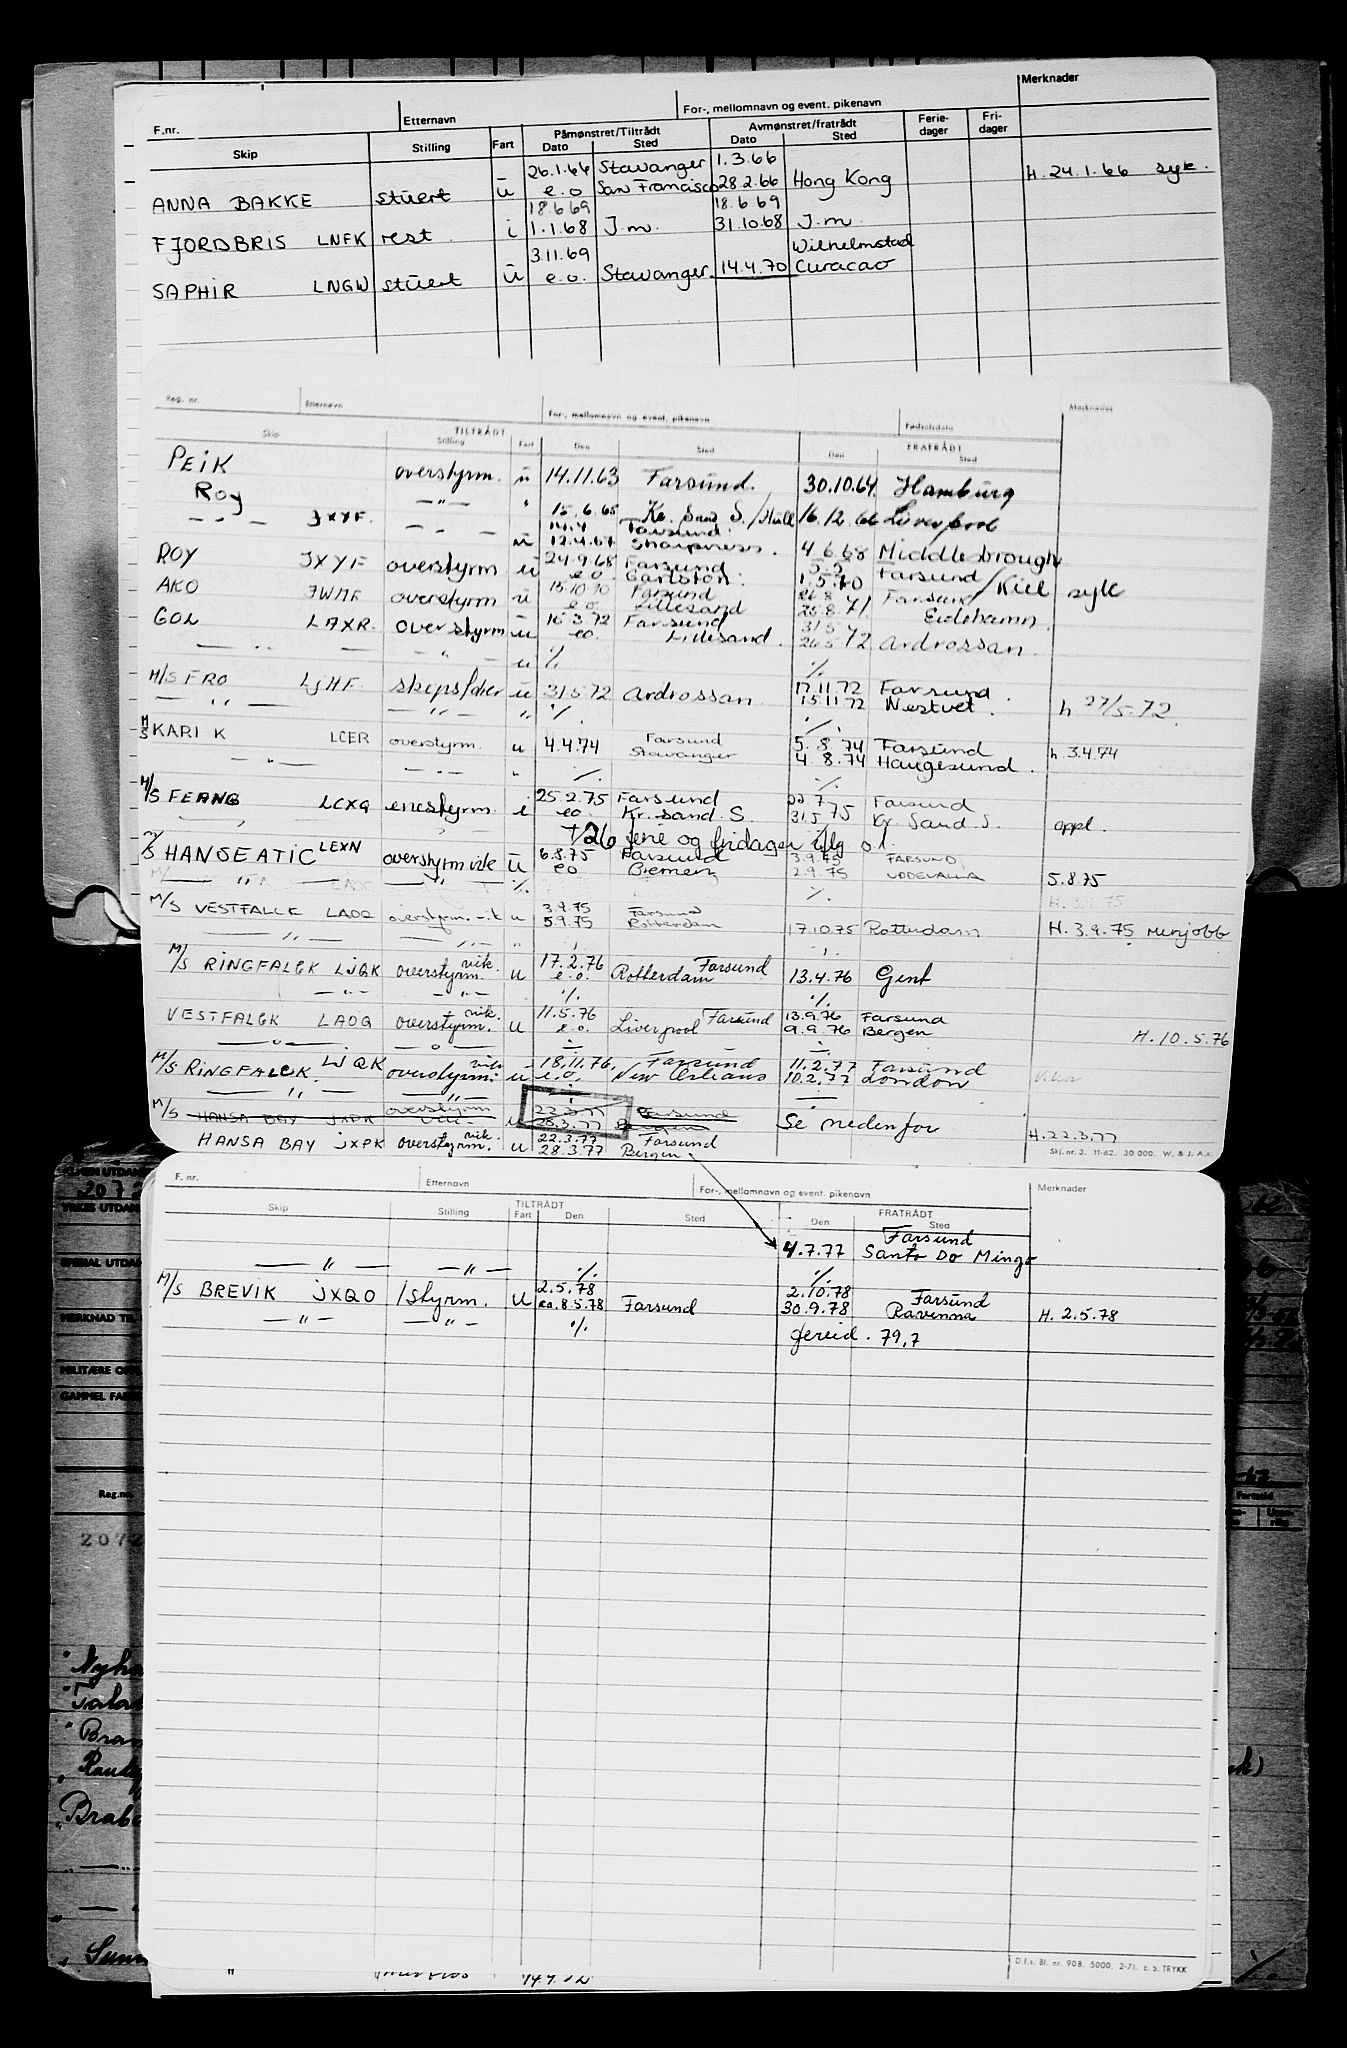 Merknader
F.nr. Etternavn For-, mellomnavn og event. pikenavn
Skip Stilling Fart Påmønstret/Tiltrådt Dato Sted Avmønstret/fratrådt Dato Sted Ferie-dager Fri-dager
26.1.66 Stavanger 1.3.66
ANNA BAKKE stuert u e.o San Francisco 28.2.66 Hong Kong H. 24.1.66 syk.
18.6.69 18.6.69
FJORDBRIS LNFK rest. i 1.1.68 J.m. 31.10.68 J.m.
3.11.69 Wilhelmstad
SAPHIR LNGW stuert u e.o. Stavanger. 14.4.70 Curacao
Reg. nr. Etternavn For-, mellomnavn og event. pikenavn Fødselsdato Merknader
TILTRÅDT FRATRÅDT
Skip Stilling Fart Den Sted Den Sted
PEIK overstyrm. u 14.11.63 Farsund. 30.10.64 Hamburg
Roy — " — " 15.6.65 Kr. Sand S./Hull 16.12.66 Liverpool
— " — JXYF. — " — 14.4 Farsund
u 12.4.67 Sharpness. 4.6.68 Middlesbrough
ROY JXYF overstyrm u 24.9.68 Farsund 5.5 Farsund
e.o. Garlston. 1.5.70 /Kiel syk
AKO JWMF overstyrm u 15.10.70 Farsund 26.8 Farsund
e.o. Lillesand 25.8.71 Eidehamn.
GOL LAXR. overstyrm u 16.3.72 Farsund 31.5
eo. Lillesand. 26.5 72 Ardrossan.
— " — — " — u % %
M/S FRO LJHF. u 31.5.72 Ardrossan 17.11.72 Farsund.
— " — — " — " % 15.11.72 Nestvet. h 27/5-72.
M/S KARI K LCER overstyrm. u 4.4.74 Farsund 5.8.74 Farsund
Stavanger 4.8.74 Haugesund. h. 3.4.74
— " — — " — " % %
M/S FERNG LCXG enestyrm. i 25.2.75 Farsund 22.7 Farsund
eo. Kr. sand. S. 31.5 75 Kr. Sand. S. oppl.
+26 ferie og fridager iflg o.l.
M/S HANSEATIC LEXN overstyrm vik u 6.8.75 Farsund 3.9.75 FARSUND
— " — — " — eo Bremen 2.9.75 UDDEVALLA 5.8.75
% %
M/S VESTFALCK LAOQ overstyrm. vik u 3.9.75 Farsund
5.9.75 Rotterdam 17.10.75 Rotterdam H. 3.9.75 merjobb
— " — — " — " % %
M/S RINGFALCK LJQK overstyrm. vik. u 17.2.76 Farsund
e.o. Rotterdam 13.4.76 Gent
— " — — " — % %
VESTFALCK LAOQ overstyrm. vik. u 11.5.76 Farsund 13.9.76 Farsund
e.o. Liverpool 9.9.76 Bergen H. 10.5.76
— " — — " — % %
M/S RINGFALCK LJQK overstyrm. vik. u 18.11.76. Farsund 11.2.77 Farsund
e.o. New Orleans 10.2.77 London
— " — — " — % %
M/S HANSA BAY JXPK overstyrm vik. u 22.3.77 Farsund
28.3.77 Bergen Se nedenfor
H. 22.3.77
HANSA BAY JXPK overstyrm. vik. u 22.3.77 Farsund
28.3.77 Bergen
Skj. nr. 3. 11-62. 30 000. W. & J. A.s.
F. nr. Etternavn For-, mellomnavn og event. pikenavn Merknader
TILTRÅDT FRATRÅDT
Skip Stilling Fart Den Sted Den Sted
Farsund
4.7.77 Santo Do Mingo
— " — — " — % %
M/S BREVIK JXQO 1styrm. u 2.5.78 2.10.78 Farsund
eo. 8.5.78 Farsund 30.9.78 Ravenna H. 2.5.78
— " — — " — %
79,7
D.f.s. Bl. nr. 908. 5000. 2-71. E.S. TRYKK
Reg.nr.
2072